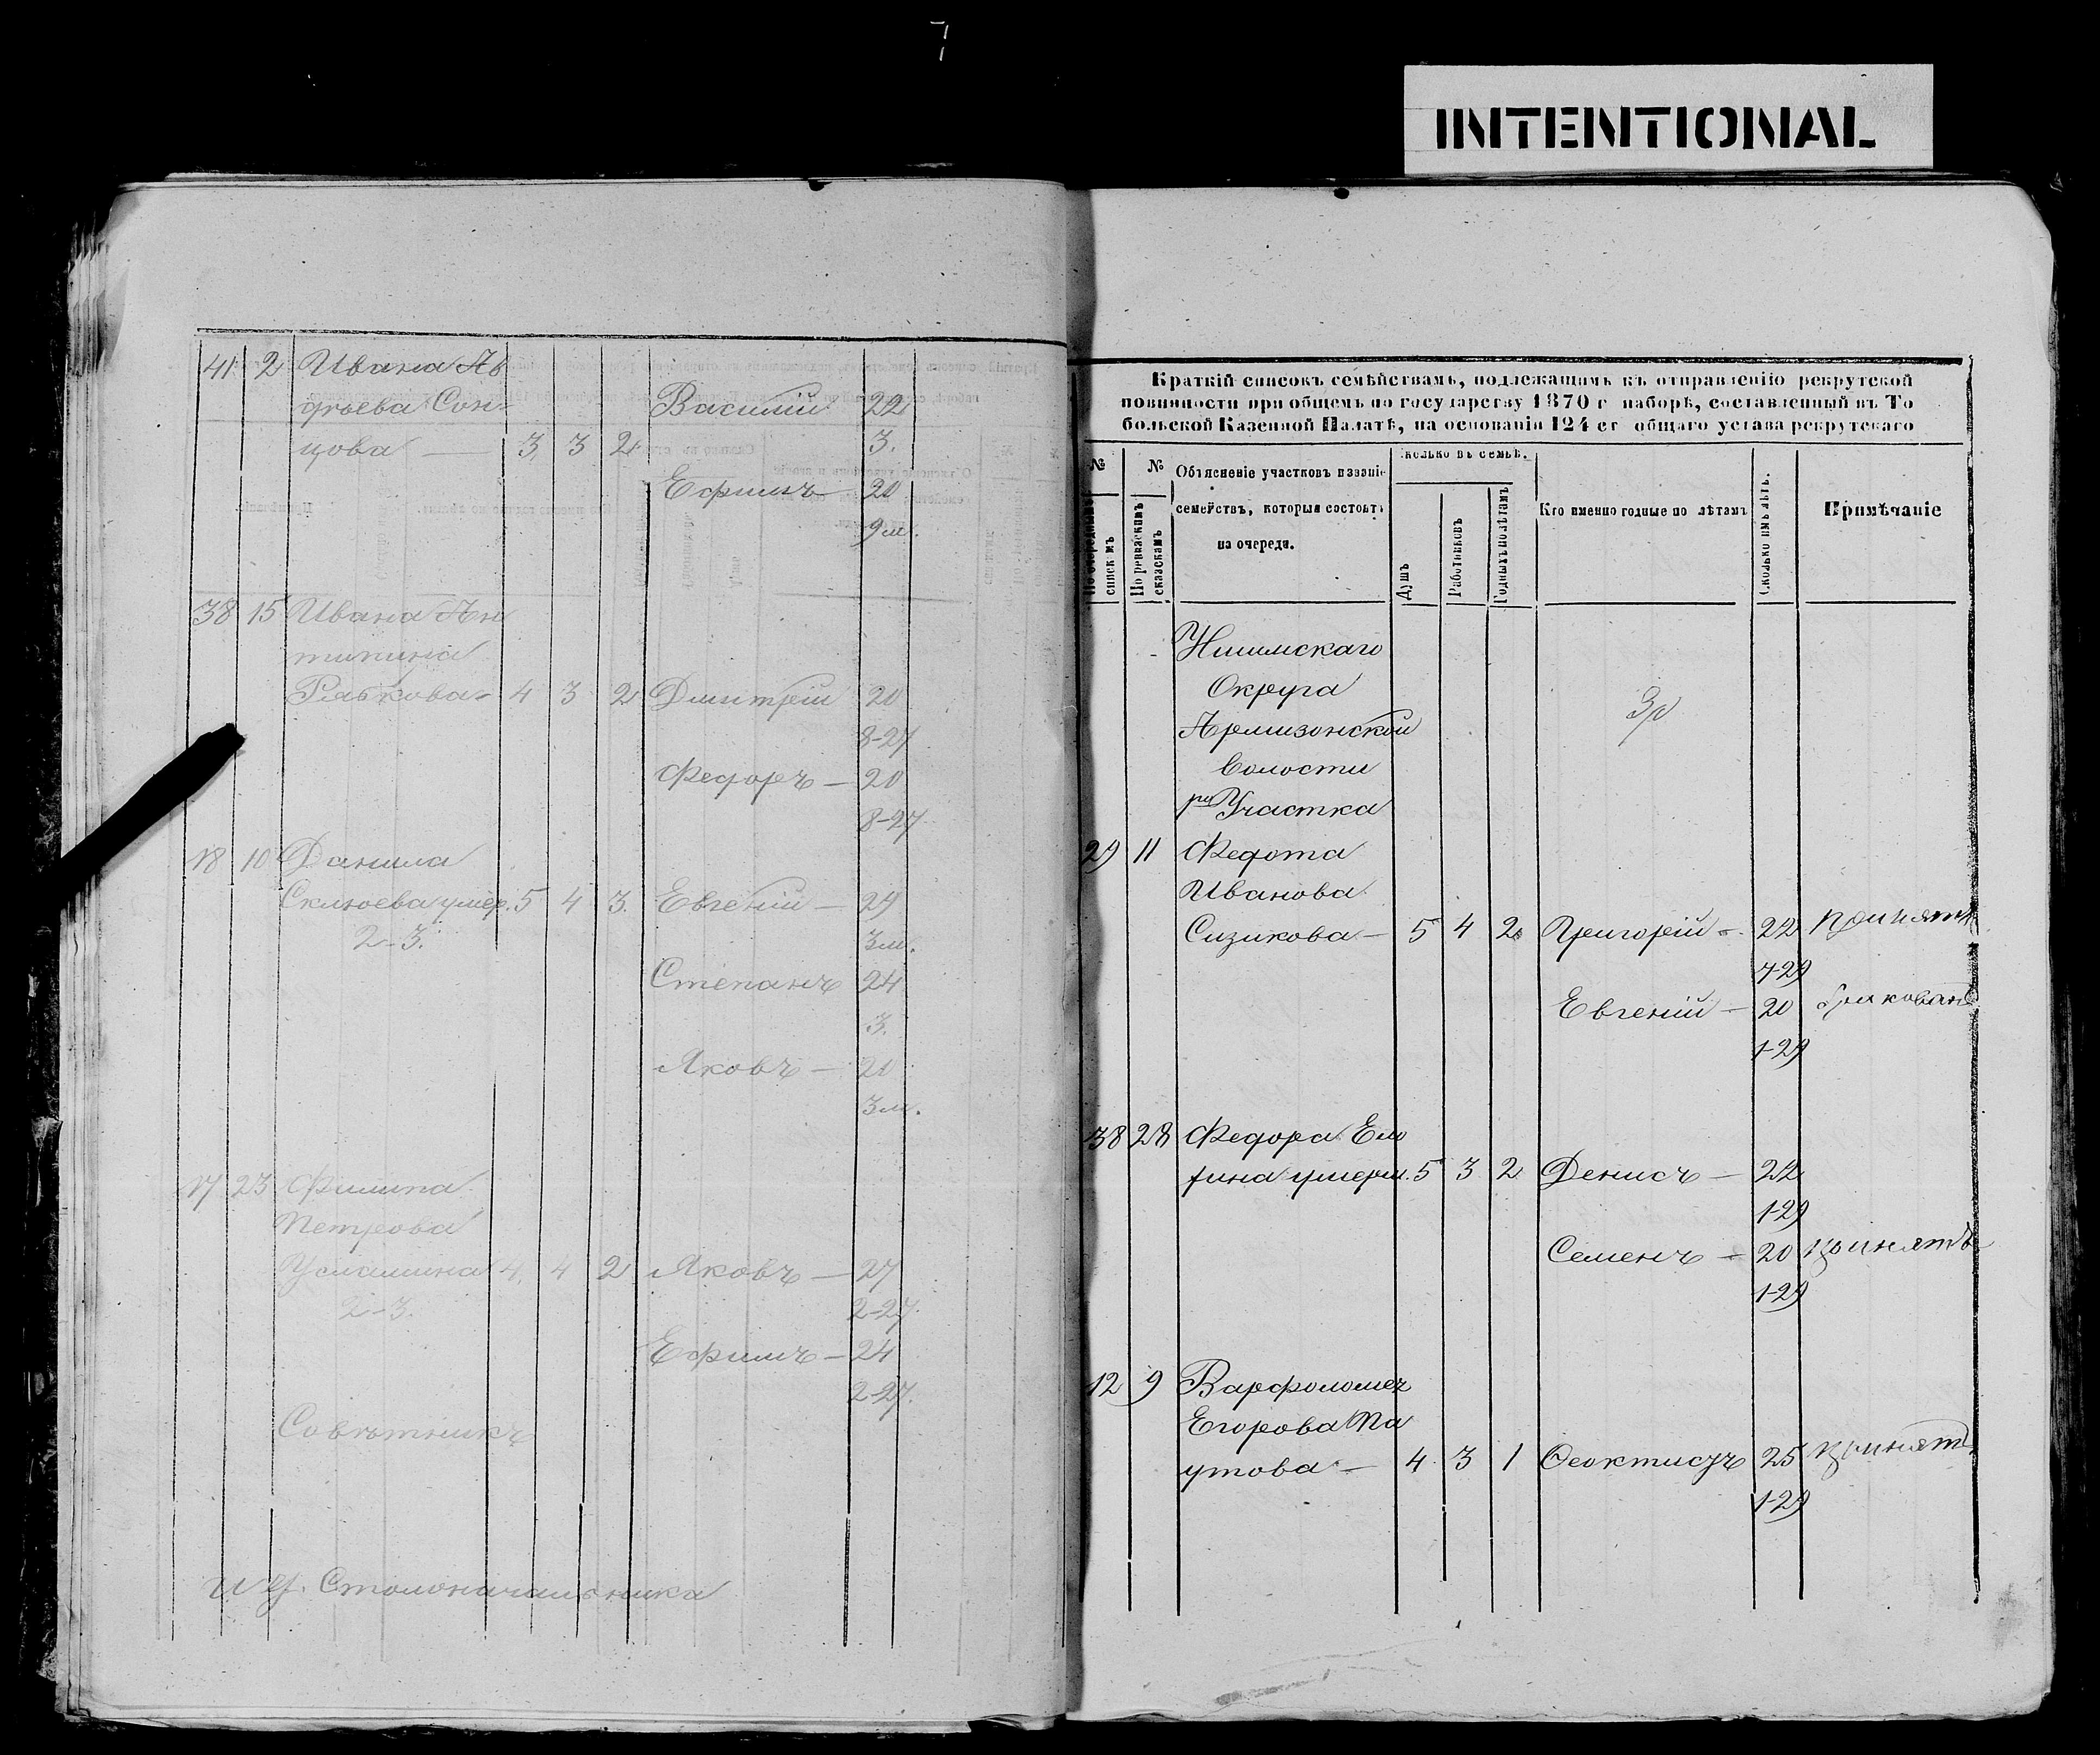 7
INTENTIONAL
41 2 Ивана Ав
дѣева Сон- Василій 22
цова — 3. 3 2 3.
Ефимъ 20
9 м.
38 15 Ивана Ан
типина
Рябкова- 4 3 2 Дмитрій 20
8-27
Федоръ — 20
8-27
18 10 Данила
Склюева умер. 5 4 3. Евгеній — 29
2-3. 3 м.
Степанъ 24
3.
Яковъ — 21
3 м.
17 23 Филипа
Петрова
4. 4 2 Яковъ — 27
2-3. 2-27.
Ефимъ — 24
2-27.
Совѣтникъ
Столоначальника
Краткій списокъ семѣйствамъ, подлежащимъ къ отправленію рекрутской
повинности при общемъ по государству 1870 г наборѣ, составленный въ То
больской Казенной Палатѣ, на основаніи 124 ст общаго устава рекрутскаго
№
По очереднымъ спискамъ
№
По ревизскимъ сказкамъ
Объясненіе участковъ названіе
семействъ, которыя состоятъ
на очереди.
колько въ семьѣ.
Душъ
Работниковъ
Годныхъ по лѣтамъ
Кто именно годные по лѣтамъ
Сколько имъ лѣтъ.
Примѣчаніе
Ишимскаго
Округа
Армизонской
Волости
Участка
29 11 Федота
Иванова
Сизикова — 5 4 2 Григорій — 22 принятъ
7-29
Евгеній — 20 бракованъ
1-29
38 28 Федора Ело
хина умерш. 5 3 2 Денисъ — 22
1-29
Семенъ — 20 принятъ
1-29
12 9 Варфоломея
Егорова Па
утова — 4 3 1 Феоктистъ 25 принятъ
1-29